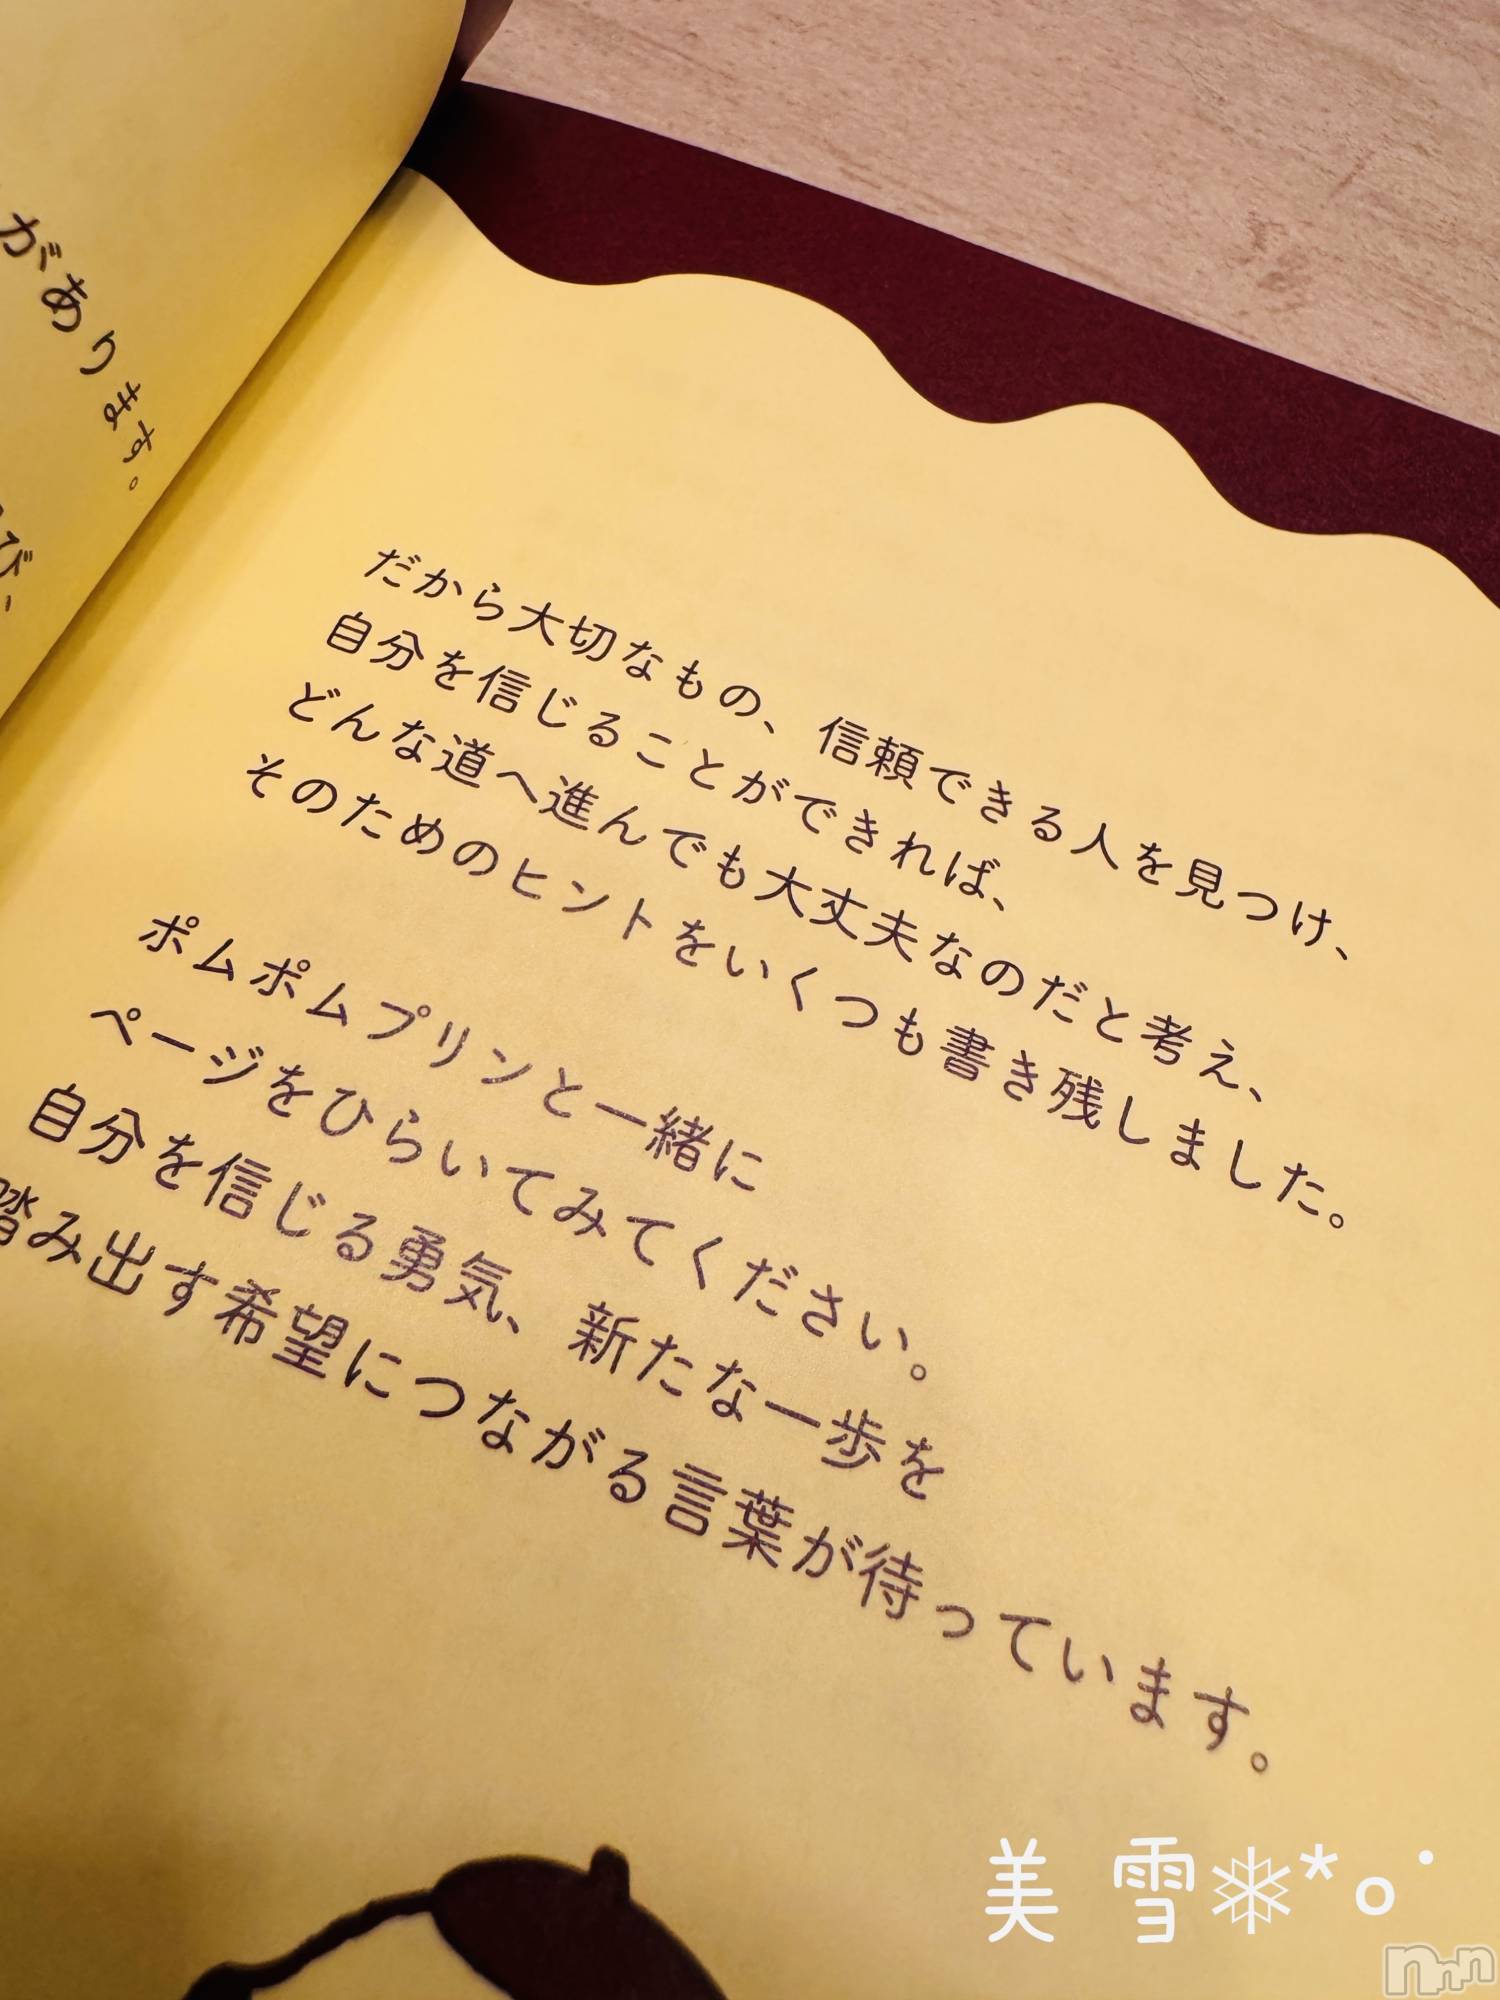 があります。
び、
だから大切なもの、信頼できる人を見つけ、
自分を信じることができれば、
どんな道へ進んでも大丈夫なのだと考え、
そのためのヒントをいくつも書き残しました。
ポムポムプリンと一緒に
ページをひらいてみてください。
自分を信じる勇気、新たな一歩を
踏み出す希望につながる言葉が待っています。
美雪❄*ﾟ˙
nnn